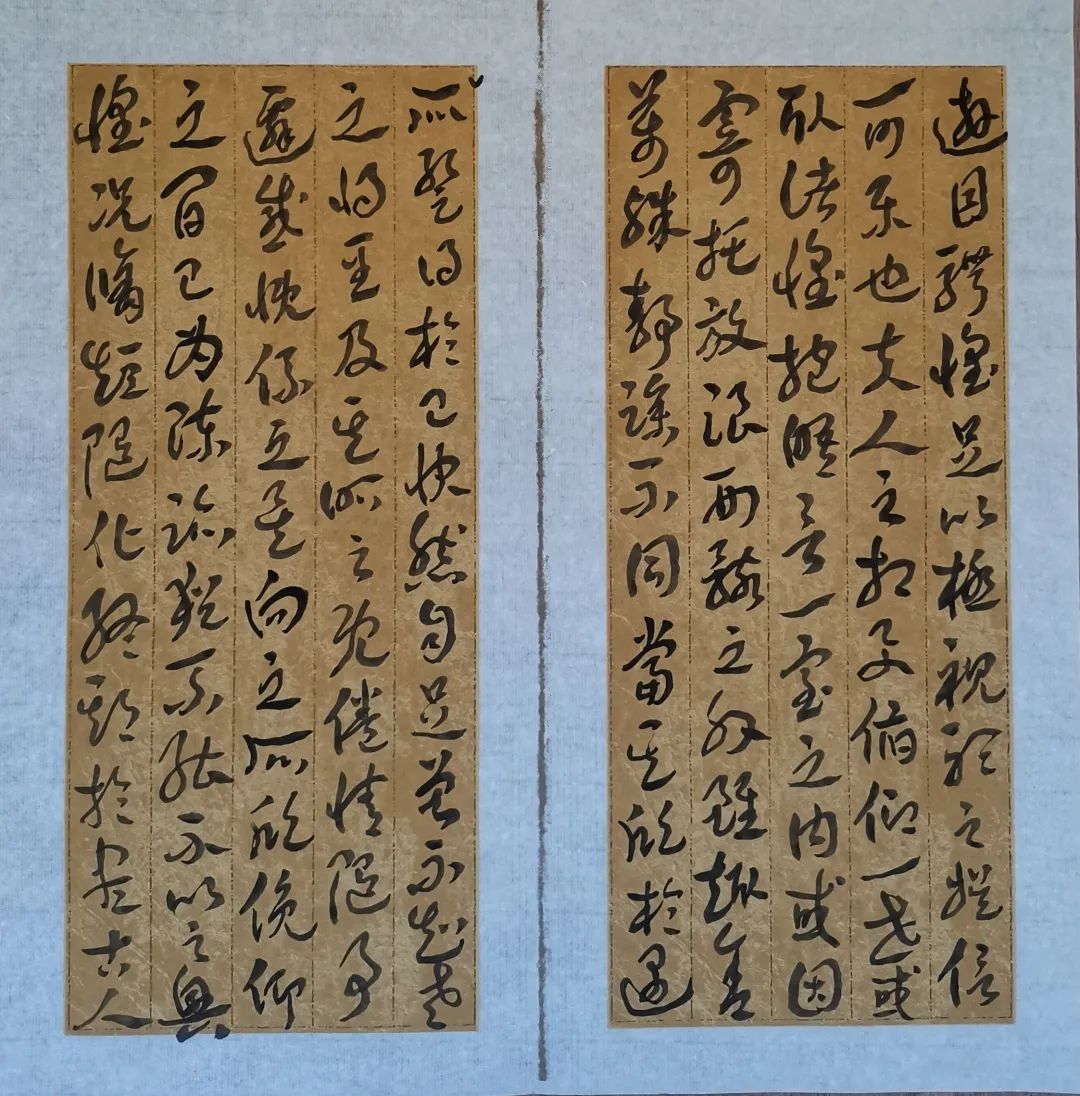 遊目騁懷足以極視聽之娛信
可樂也夫人之相與俯仰一世或
取諸懷抱晤言一室之內或因
寄托放浪形骸之外雖趣舍
萬殊靜躁不同當其欣於遇
所蹔得於己快然自足曾不知老
之將至及其所之既倦情隨事
遷感慨係之矣向之所欣俛仰
之間已為陳跡猶不能不以之興
懷況脩短隨化終期於盡古人